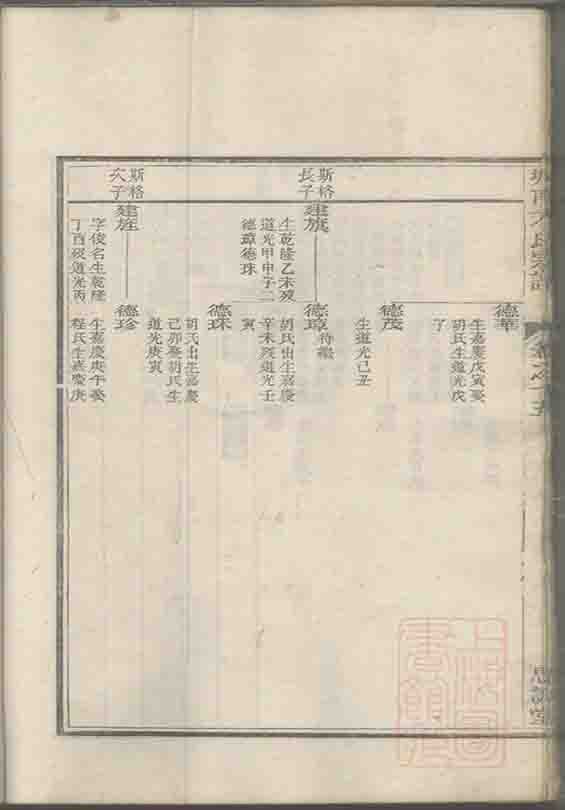 氏宗譜
卷之十五
德華
生嘉慶戊寅娶
胡氏生道光戊
子
德茂
生道光己丑
斯格
長子
建旗
生乾隆乙未歿
道光甲申子二
德璋德珠
德璋
待繼
胡氏出生嘉慶
辛未歿道光壬
寅
德珠
胡氏出生嘉慶
己卯娶胡氏生
道光庚寅
斯格
次子
建旌
字俊名生乾隆
丁酉歿道光丙
德珍
生嘉慶庚午娶
程氏生嘉慶庚
上海圖
書館藏